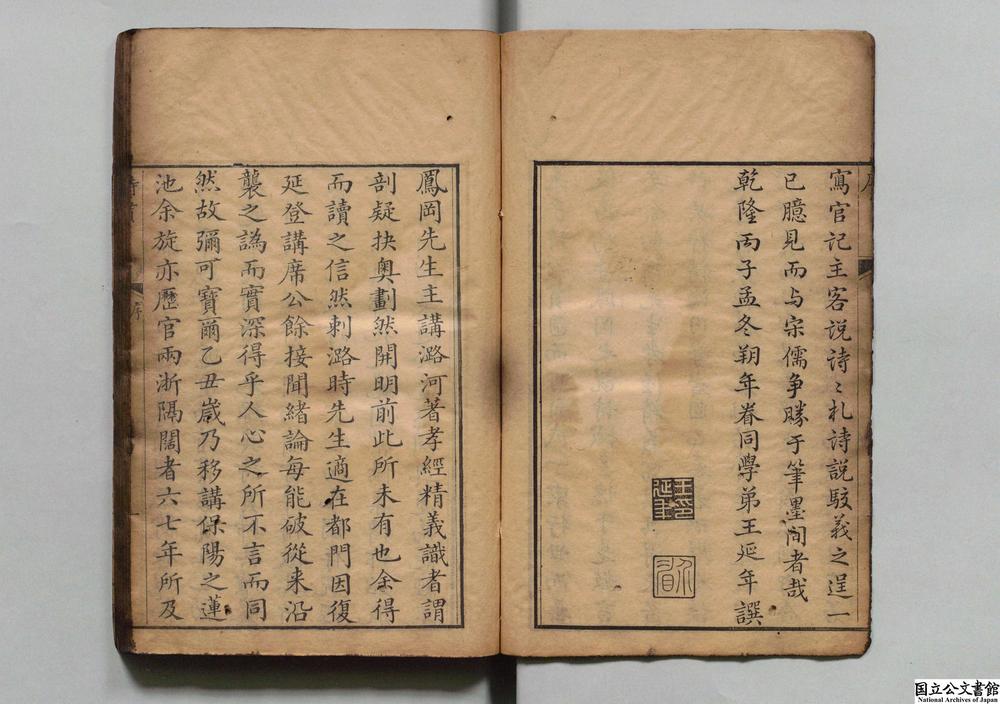 寫官記主客說詩〻札詩說駁義之逞一
已臆見而与宋儒争勝于筆墨间者哉
乾隆丙子孟冬朔年眷同學弟王延年譔
王延年印
鳳岡先生主講潞河著孝經精義識者謂
剖疑抉奥劃然開明前此所未有也余得
而讀之信然刺潞時先生適在都門因復
延登講席公餘接聞緒論每能破從来沿
襲之譌而實深得乎人心之所不言而同
然故彌可寳爾乙丑嵗乃移講保陽之蓮
池余旋亦歷官兩浙隔闊者六七年所及
序
国立公文書館
National Archives of Japan